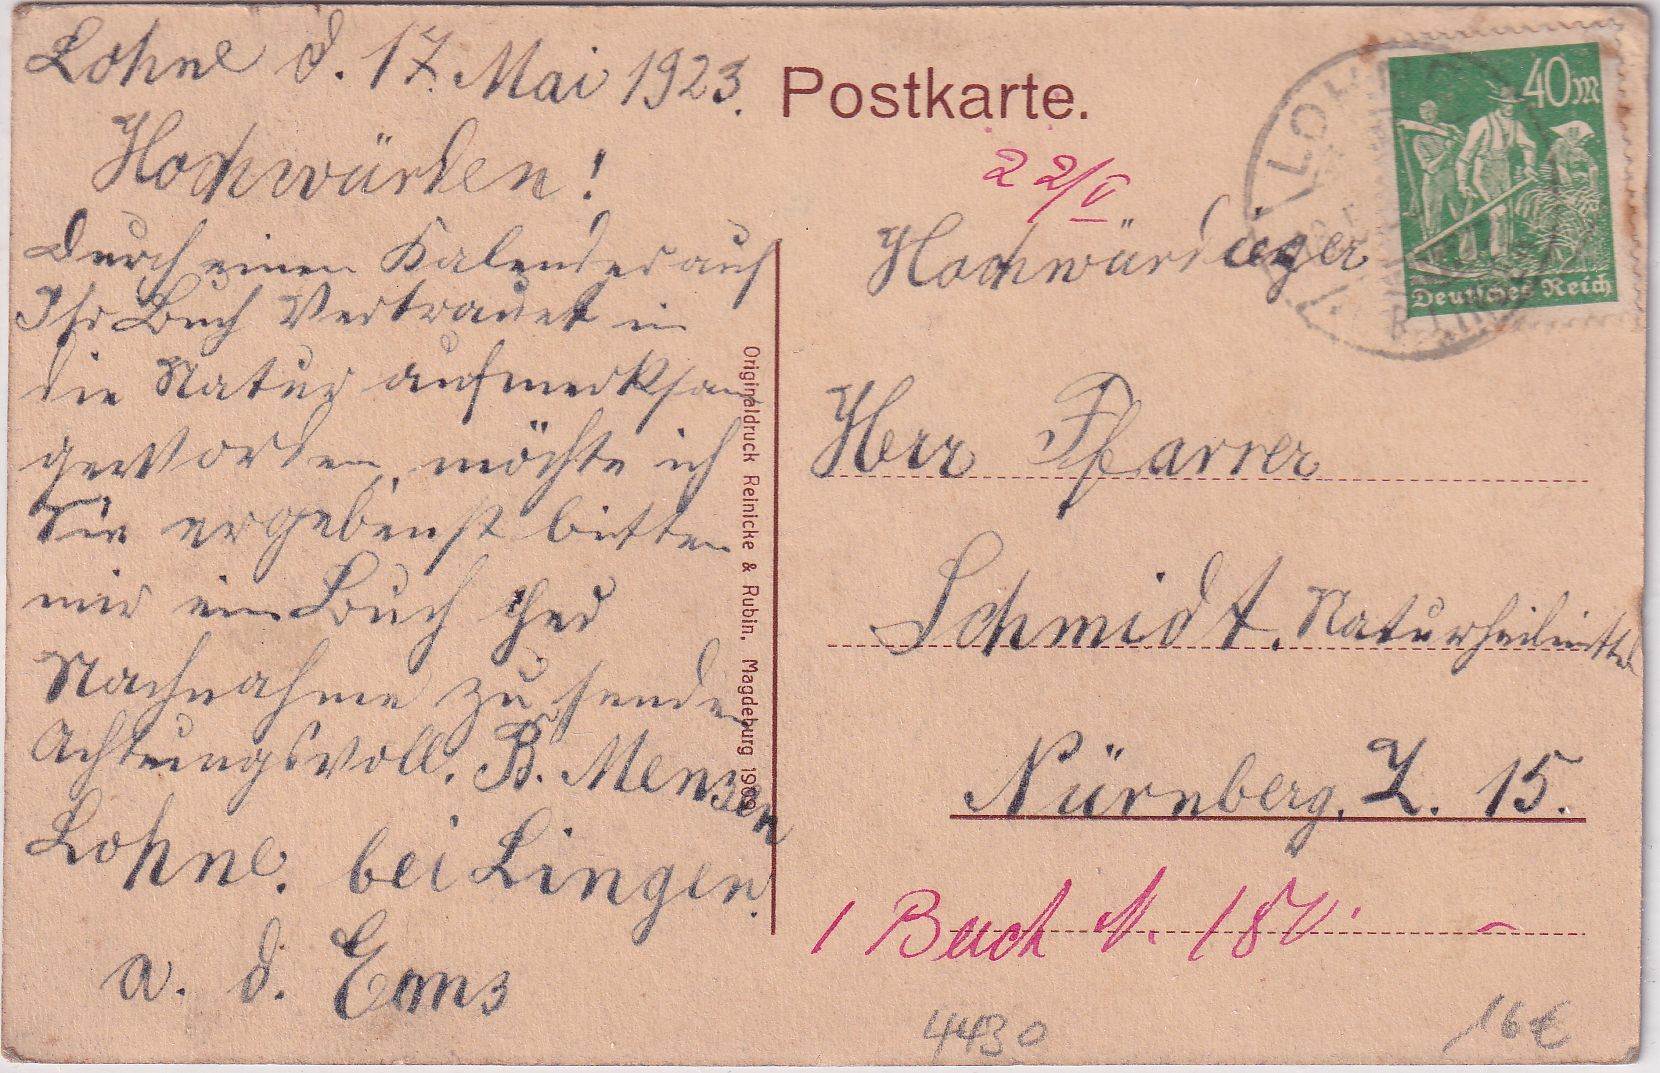 Lohne d. 17. Mai 1923.
Hochwürden!
Durch einen Kalender auf
Ihr Buch Vertrauet in
die Natur aufmerksam
geworden, möchte ich
Sie ergebenst bitten
mir ein Buch per
Nachnahme zu senden
Achtungsvoll. B. Menzen
Lohne. bei Lingen.
a. d. Ems
Originaldruck Reinicke & Rubin, Magdeburg 1909
Postkarte.
22/V
40 M
Deutsches Reich
Hochwürdiger
Herr Pfarrer
Schmidt, Naturheilinstitut
Nürnberg. Z. 15.
1 Buch
4430
16 €